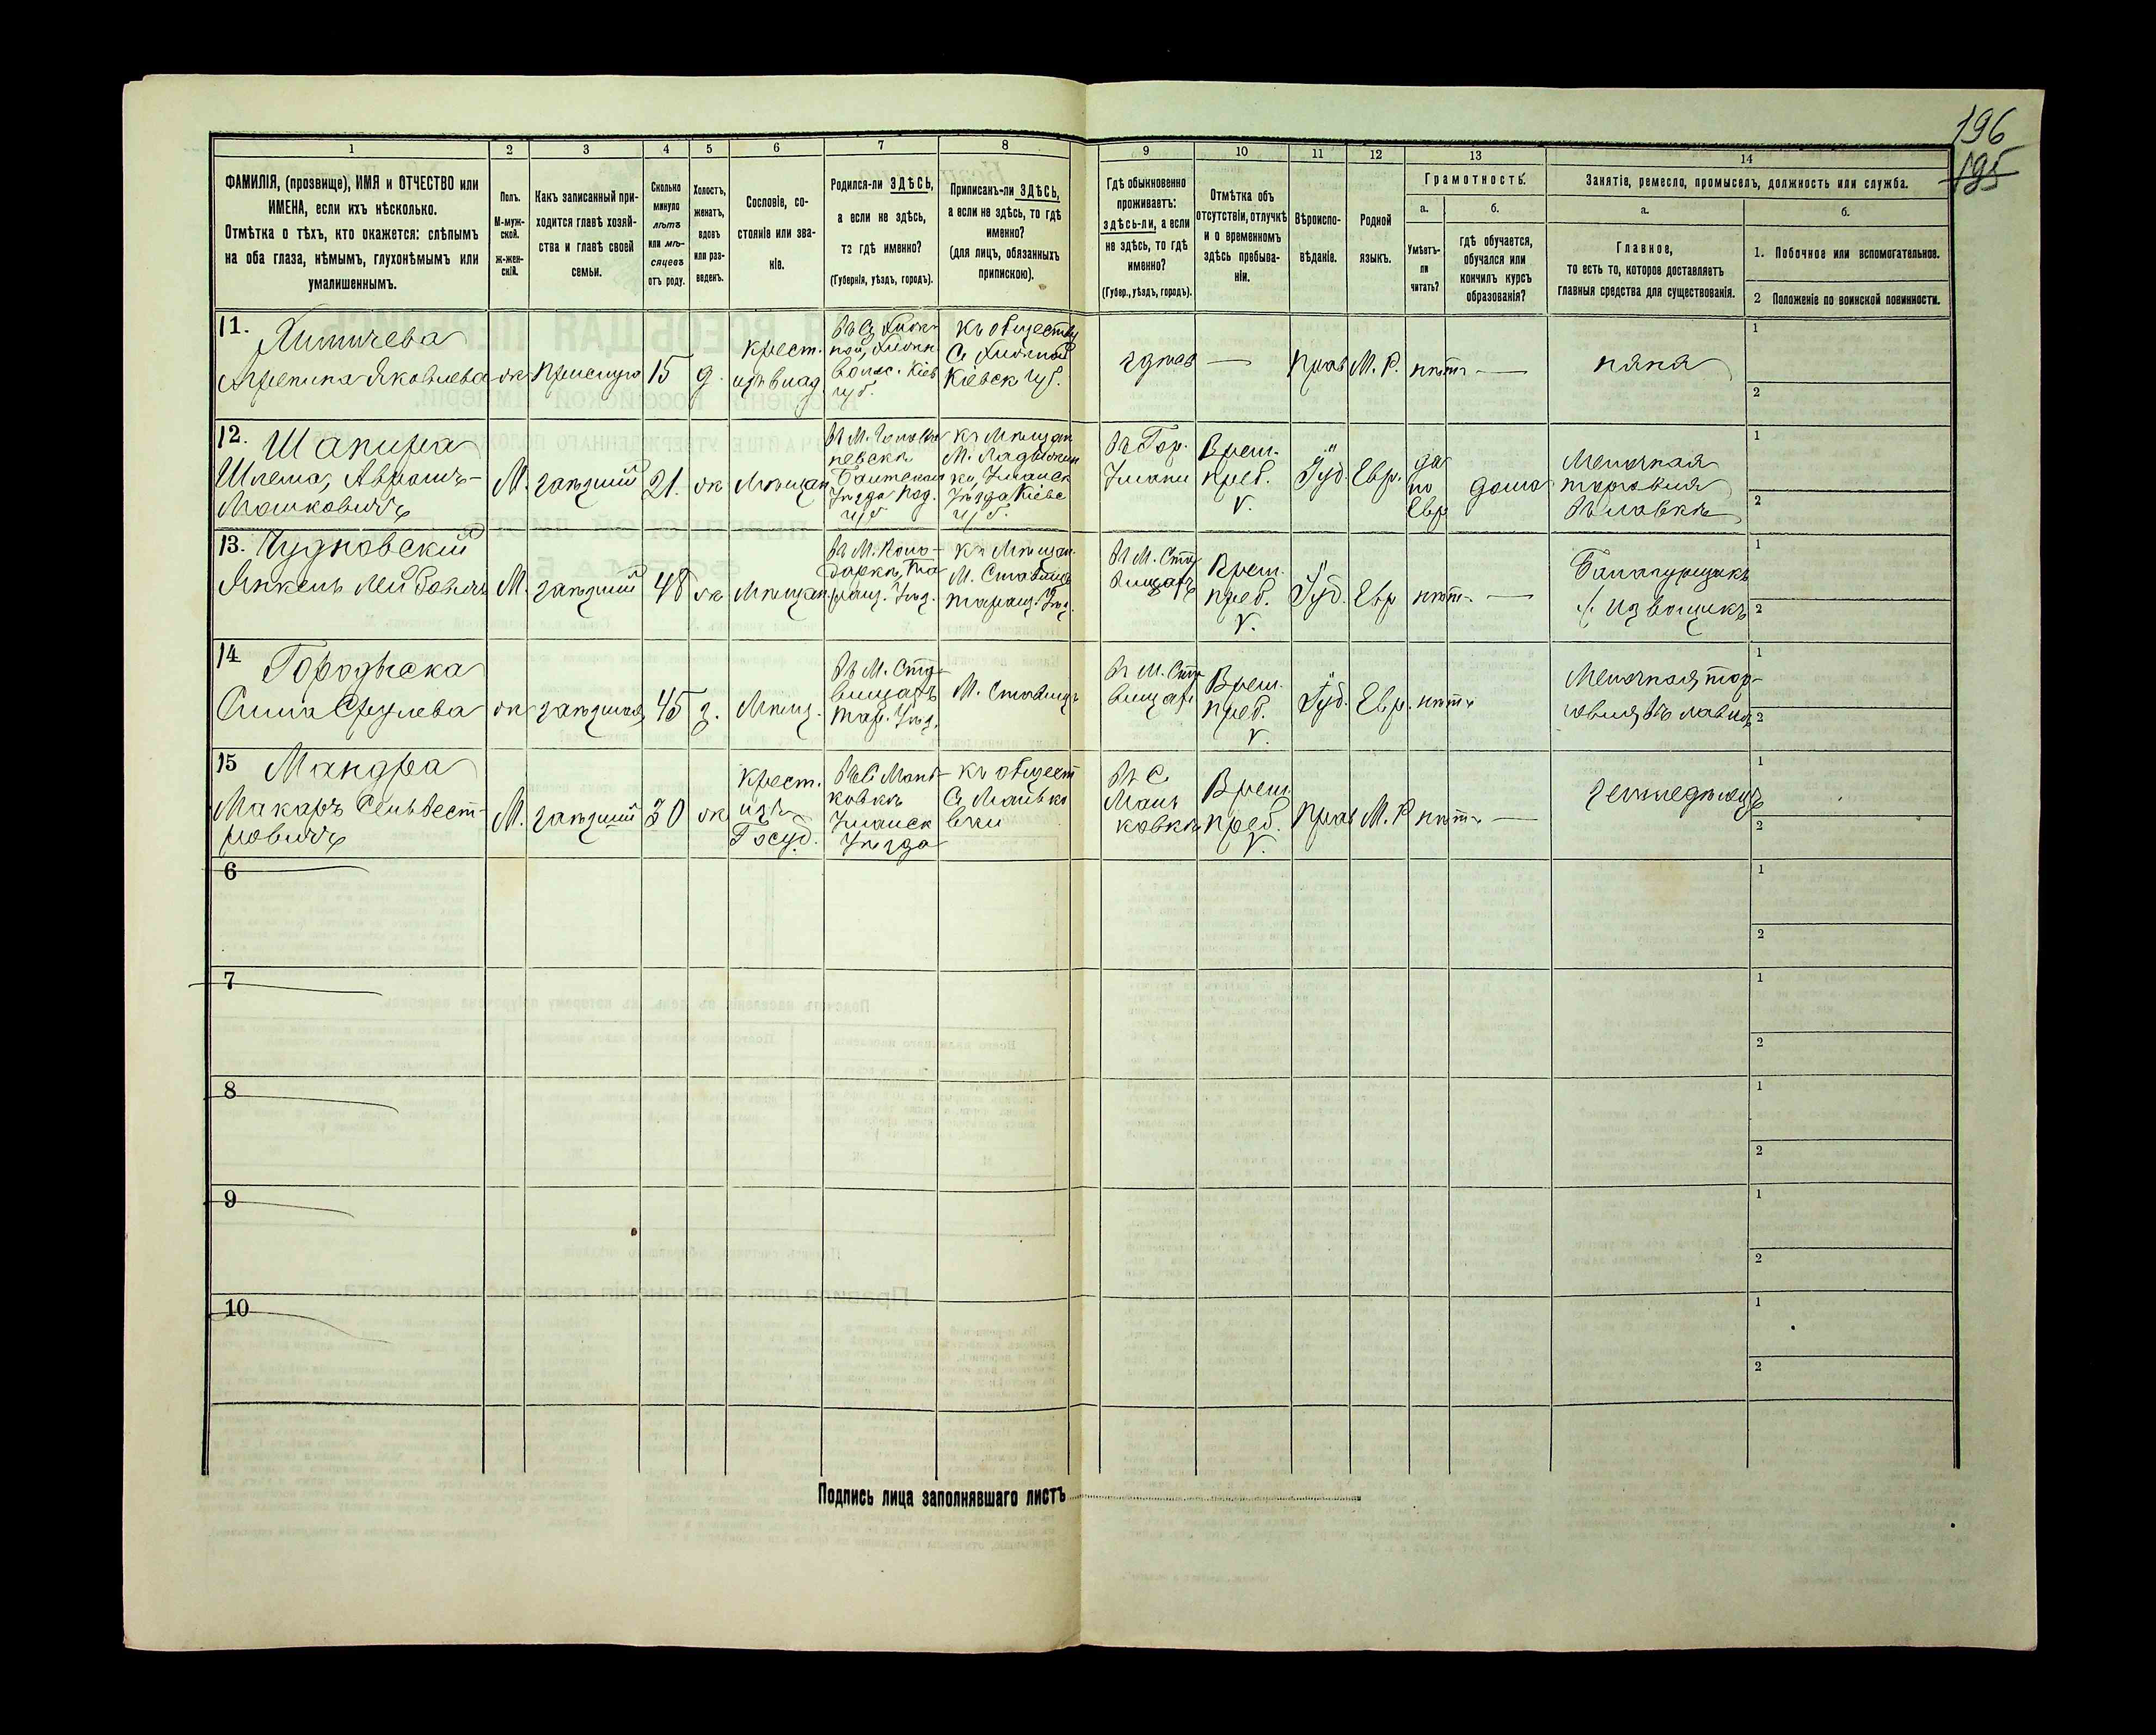 196
195
1
2
3
4
5
6
7
8
9
10
11
12
13
14
ФАМИЛІЯ, (прозвище), ИМЯ и ОТЧЕСТВО или
ИМЕНА, если ихъ нѣсколько.
Отмѣтка о тѣхъ, кто окажется: слѣпымъ
на оба глаза, нѣмымъ, глухонѣмымъ или
умалишеннымъ.
Полъ.
М-муж-
ской.
ж-жен-
скій.
Какъ записанный при-
ходится главѣ хозяй-
ства и главѣ своей
семьи.
Сколько
минуло
лѣтъ
или мѣ-
сяцевъ
отъ роду.
Холостъ,
женатъ,
вдовъ
или раз-
веденъ.
Сословіе, со-
стояніе или зва-
ніе.
Родился-ли ЗДѢСЬ,
а если не здѣсь,
то гдѣ именно?
(Губернія, уѣздъ, городъ).
Приписанъ-ли ЗДѢСЬ,
а если не здѣсь, то гдѣ
именно?
(для лицъ, обязанныхъ
припискою).
Гдѣ обыкновенно
проживаетъ:
здѣсь-ли, а если
не здѣсь, то гдѣ
именно?
(Губер., уѣздъ, городъ).
Отмѣтка объ
отсутствіи, отлучкѣ
и о временномъ
здѣсь пребыва-
ніи.
Вѣроиспо-
вѣданіе.
Родной
языкъ.
Грамотность.
а.
Умѣетъ-
ли
читать?
б.
гдѣ обучается,
обучался или
кончилъ курсъ
образованія?
Занятіе, ремесло, промыселъ, должность или служба.
а.
Главное,
то есть то, которое доставляетъ
главныя средства для существованія.
б.
1. Побочное или вспомогательное.
2 Положеніе по воинской повинности.
11.
Агрепина Яковлева
ж
15
д.
крест.
изъ влад
Къ обществу
Кіевск губ.
здѣсь
—
Прав
М. Р.
нѣтъ
—
няня
1
2
12. Шапира
Шлема, Аврамъ-
Мошковичъ
М.
заѣзжій
21.
ж
Мѣщан.
Къ Мѣщан
М. Ладыжин
ки, Уманск
Уѣзда Кіевс
губ.
Въ Гор.
Умани
Врем.
преб.
V.
Іуд.
Евр.
да
по
Евр
дома
Мелочная
торговля
Въ лавкѣ
1
2
13. Чудновскій
Янкель Лейбовичъ
М.
заѣзжій
48
ж
Мѣщан.
Къ Мѣщан.
М. Ставищъ
Таращ. Уѣз.
Въ М. Ста
вищахъ
Врем.
преб.
V.
Іуд.
Евр
нѣтъ
—
Балагурщикъ
/. Извощикъ
1
2
14 Городиска
ж
заѣзжая
45
з.
Мѣщ.
Въ М. Ста-
вищахъ
Тар. Уѣз.
М. Ставищъ
Въ М. Ста
вищахъ
Врем.
преб.
V.
Іуд.
Евр.
нѣтъ
Мелочная тор-
говля, Въ лавкѣ
1
2
15 Мандра
Макаръ Сельвест-
ровичъ
М.
заѣзжій
30
ж
Крест.
изъ
Госуд.
Въ С Мань-
ковкѣ
Уманск
Уѣзда
Къ общест
С. Манько
вки
Въ С.
Мань
ковкѣ
Врем.
преб.
V.
Прав
М. Р
нѣтъ
—
Земледѣлецъ
1
2
6
1
2
7
1
2
8
1
2
9
1
2
10
1
2
Подпись лица заполнявшаго листъ